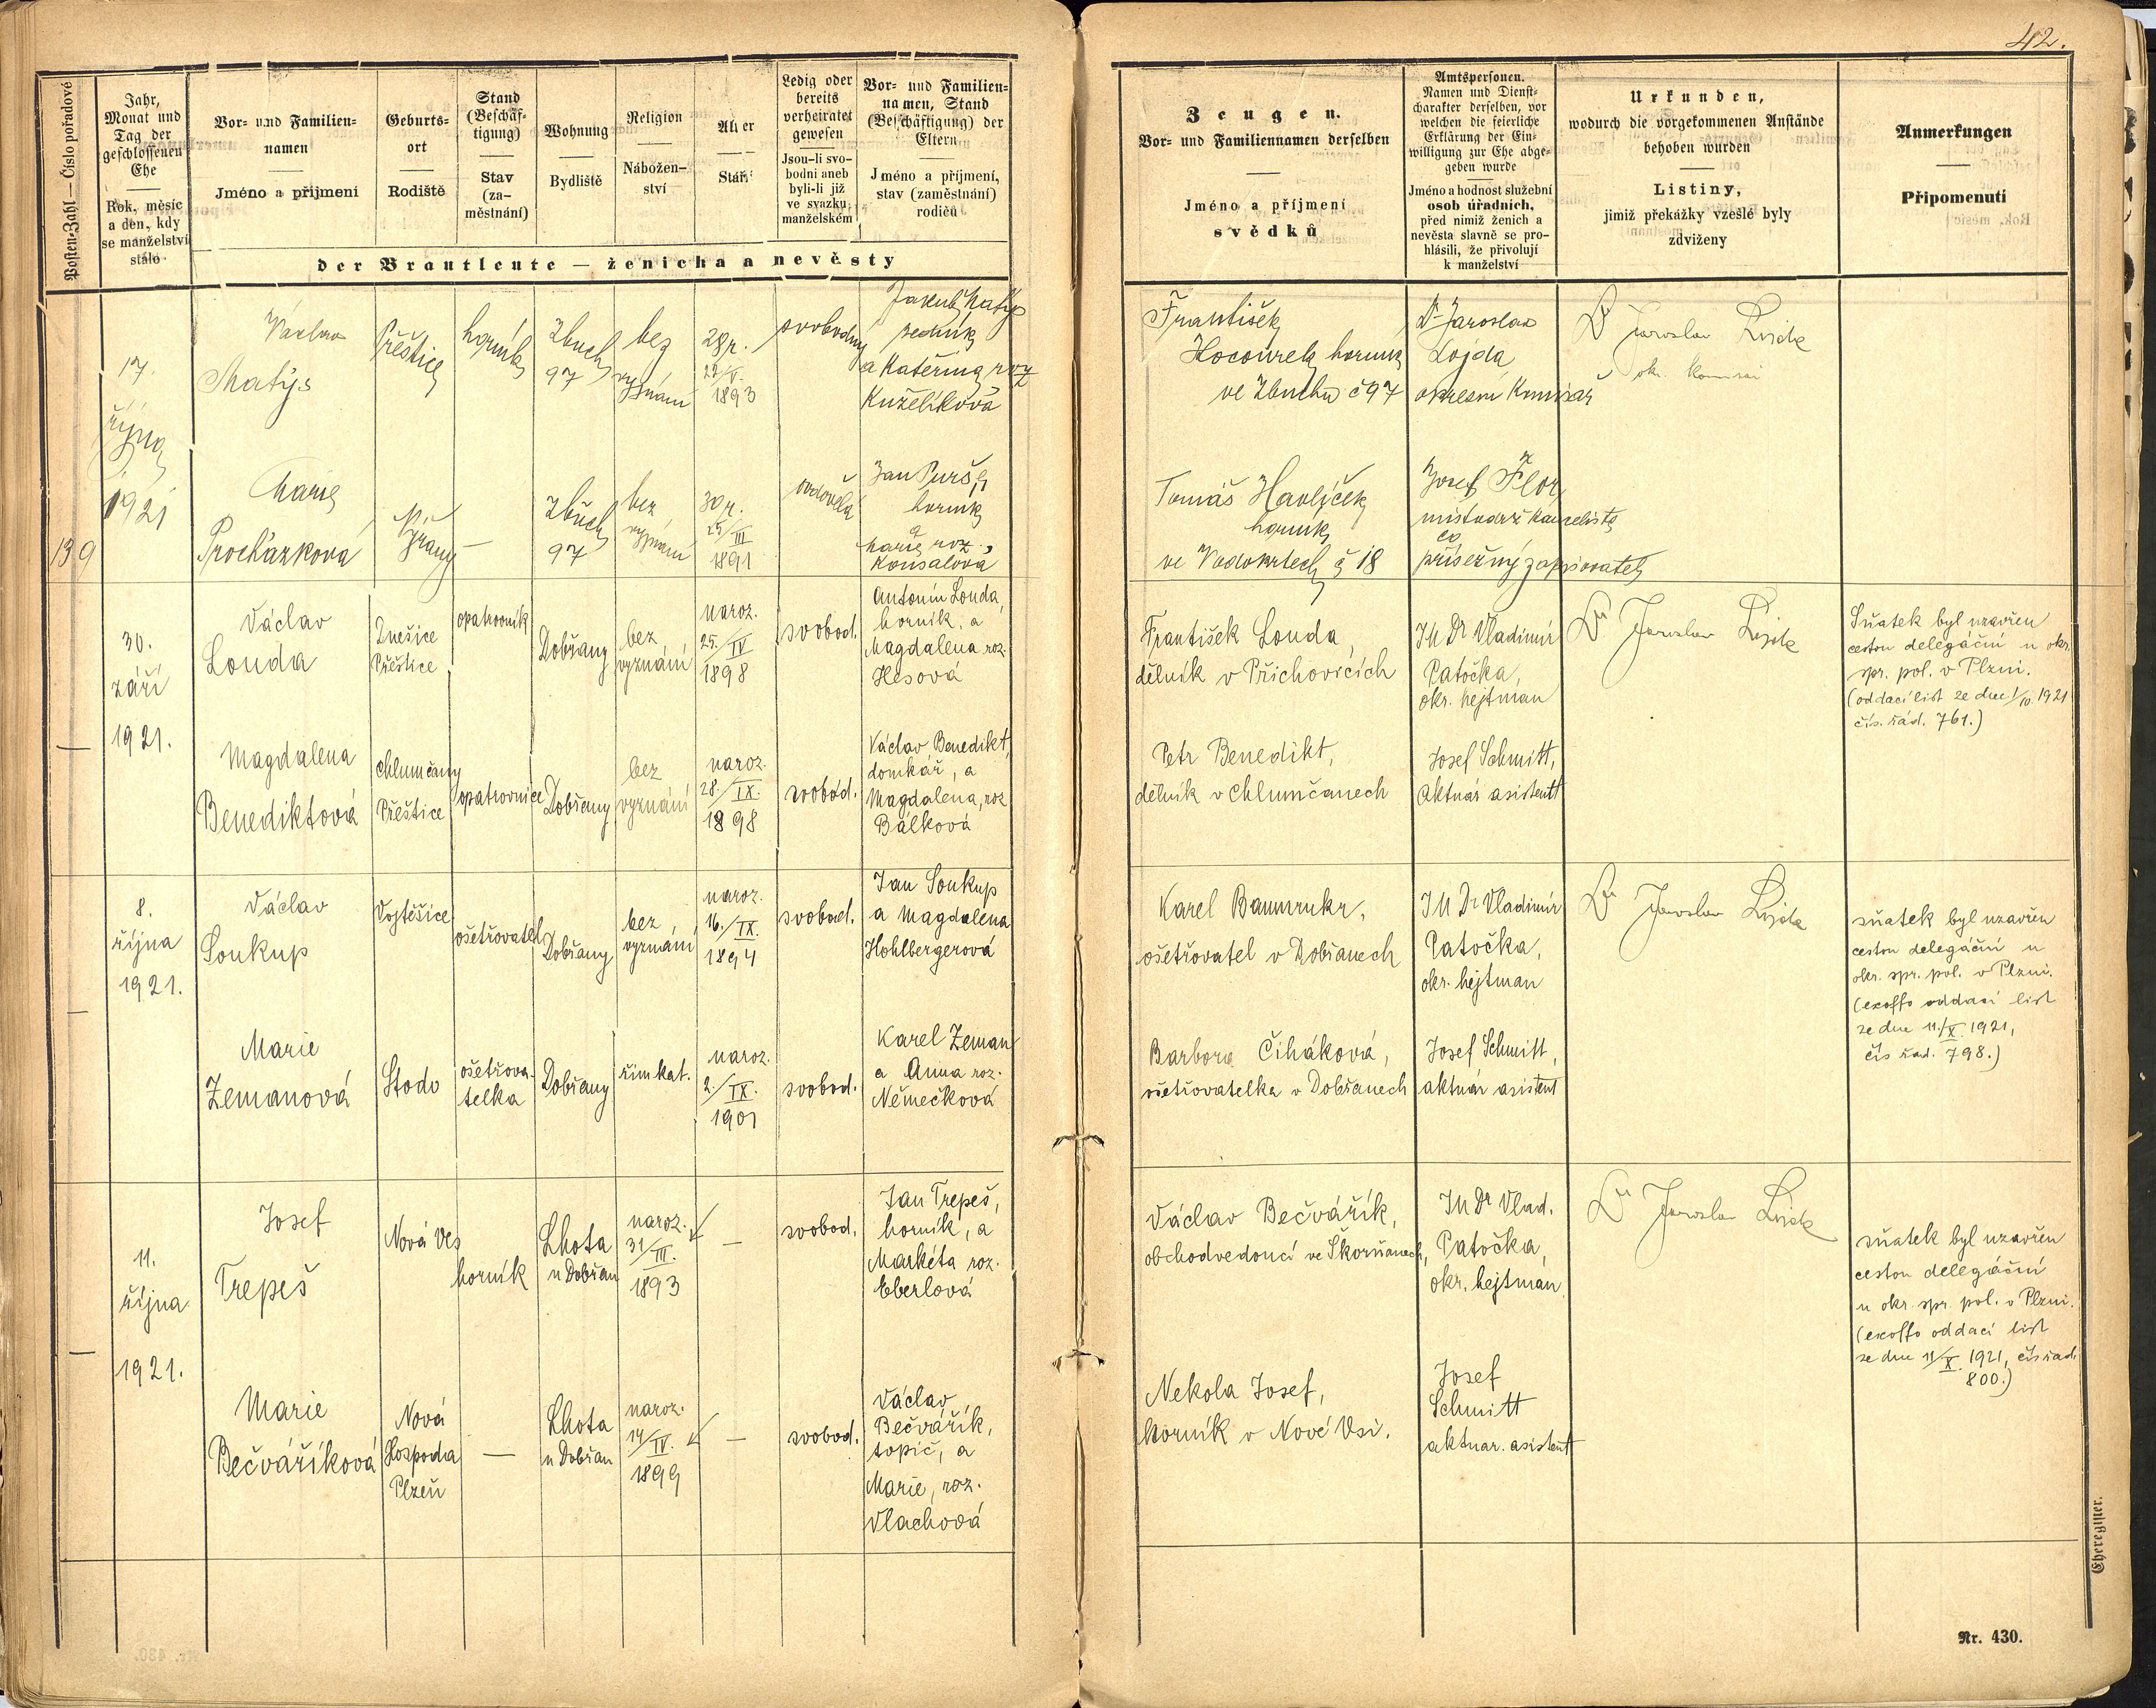 42.
Posten-Zahl — Číslo pořadové
Jahr,
Monat und
Tag der
geschlossenen
Ehe
Rok, měsíc
a den, kdy
se manželství
stálo
Vor- und Familien-
namen
Jméno a příjmení
Geburts-
ort
Rodiště
Stand
(Beschäf-
tigung)
Stav
(za-
městnání)
Wohnung
Bydliště
Religion
Nábožen-
ství
Alter
Stáří
Ledig oder
bereits
verheiratet
gewesen
Jsou-li svo-
bodni aneb
byli-li již
ve svazku
manželském
Vor- und Familien-
namen, Stand
(Beschäftigung) der
Eltern
Jméno a příjmení,
stav (zaměstnání)
rodičů
der Brautleute — ženicha a nevěsty
Zeugen.
Vor- und Familiennamen derselben
Jméno a příjmení
svědků
Amtspersonen.
Namen und Dienst-
charakter derselben, vor
welchen die feierliche
Erklärung der Ein-
willigung zur Ehe abge-
geben wurde
Jméno a hodnost služební
osob úřadních,
před nimiž ženich a
nevěsta slavně se pro-
hlásili, že přivolují
k manželství
Urkunden,
wodurch die vorgekommenen Anstände
behoben wurden
Listiny,
jimiž překážky vzešlé byly
zdviženy
Anmerkungen
Připomenutí
139
17.
října
1921
Václav
Matýs
Přeštice
horník
Zbuch
97
bez
vyznání
28 r.
27/V.
1893
svobodný
Jakub Matýs
sedník
a Kateřina roz
Kuželíková
František
Kocourek horník
ve Zbuchu č 97
Dr Jaroslav
Lojda
okresní komisař
Dr Jaroslav Lojda
okr. komisař
Marie
Procházková
Nýřany
—
Zbuch
97
bez
vyznání
30 r.
25/III
1891
ovdovělá
Jan Purš
horník
a
Marie roz.
Konsalová
Tomáš Havlíček
horník
ve Vodokrtech č 18
Josef Flor
místodrž kancelista
co
přísežný zapisovatel
—
30.
září
1921.
Václav
Louda
Dnešice
Přeštice
opatrovník
Dobřany
bez
vyznání
naroz.
25./IV
1898
svobod.
Antonín Louda,
horník, a
Magdalena roz.
Hesová
František Louda,
dělník v Příchovicích
JUDr Vladimír
Patočka,
okr. hejtman
Dr Jaroslav Lojda
Sňatek byl uzavřen
cestou delegační u okr.
spr. pol. v Plzni.
(oddací list ze dne 1/10. 1921
čís. řad. 761.)
Magdalena
Benediktová
Chlumčany
Přeštice
opatrovnice
Dobřany
bez
vyznání
naroz.
28./IX.
1898
svobod.
Václav Benedikt,
domkář, a
Magdalena, roz
Bálková
Petr Benedikt,
dělník v Chlumčanech
Josef Schmitt,
aktuár asistent
—
8.
října
1921.
Václav
Soukup
Vojtěšice
ošetřovatel
Dobřany
bez
vyznání
naroz.
16./IX.
1894
svobod.
Jan Soukup
a Magdalena
Hohlbergerová
Karel Baumrukr,
ošetřovatel v Dobřanech
JUDr Vladimír
Patočka,
okr. hejtman
Dr Jaroslav Lojda
sňatek byl uzavřen
cestou delegační u
okr. spr. pol. v Plzni.
(exoffo oddací list
ze dne 11./X. 1921,
čís řad. 798.)
Marie
Zemanová
Stodo
ošetřova-
telka
Dobřany
řím kat.
naroz.
2./IX.
1901
svobod.
Karel Zeman
a Anna roz.
Němečková
Barbora Čiháková,
ošetřovatelka v Dobřanech
Josef Schmitt,
aktuár asistent
—
11.
října
1921.
Josef
Trepeš
Nová Ves
horník
Lhota
u Dobřan
naroz.
31/III.
1893
—
svobod.
Jan Trepeš,
horník, a
Markéta roz.
Eberlová
Václav Bečvářík,
obchodvedoucí ve Skořňanech,
JUDr Vlad.
Patočka,
okr. hejtman
Dr Jaroslav Lojda
sňatek byl uzavřen
cestou delegační
u okr. spr. pol. v Plzni.
(exoffo oddací list
ze dne 11/X. 1921, čís řad.
800.)
Marie
Bečváříková
Nová
Hospoda
Plzeň
—
Lhota
u Dobřan
naroz.
14/IV.
1899
—
svobod.
Václav
Bečvářík,
topič, a
Marie, roz.
Vlachová
Nekola Josef,
horník v Nové Vsi.
Josef
Schmitt
aktuar. asistent
Eheregister.
Nr. 430.